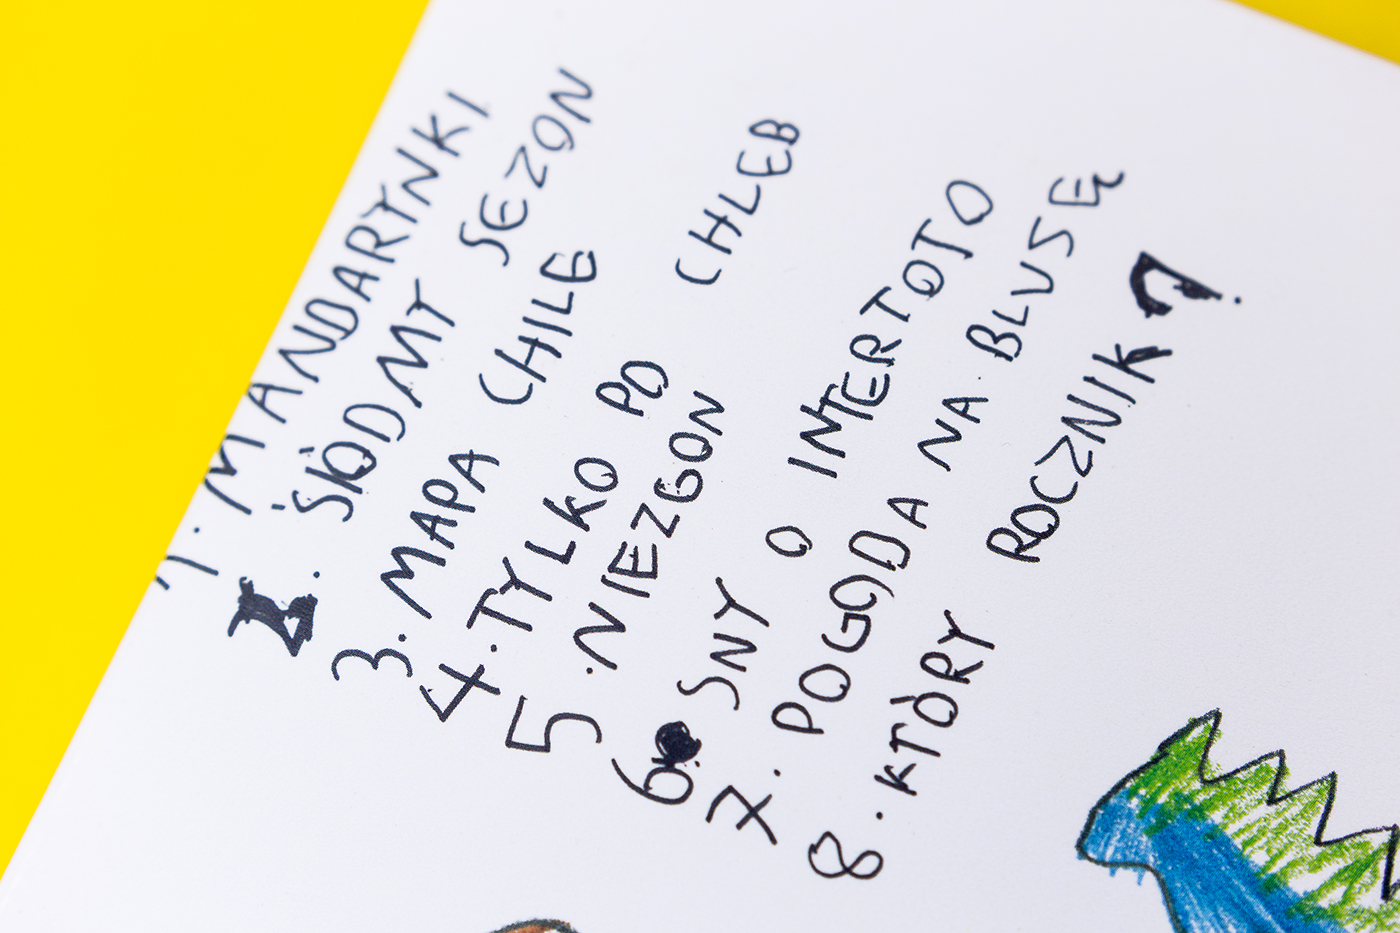 1. MANDARYNKI
2. SIÓDMY SEZON
3. MAPA CHILE
4. TYLKO PO CHLEB
5. NIEZGON
6. SNY O INTERTOTO
7. POGODA NA BLUSĘ
8. KTÓRY ROCZNIK?